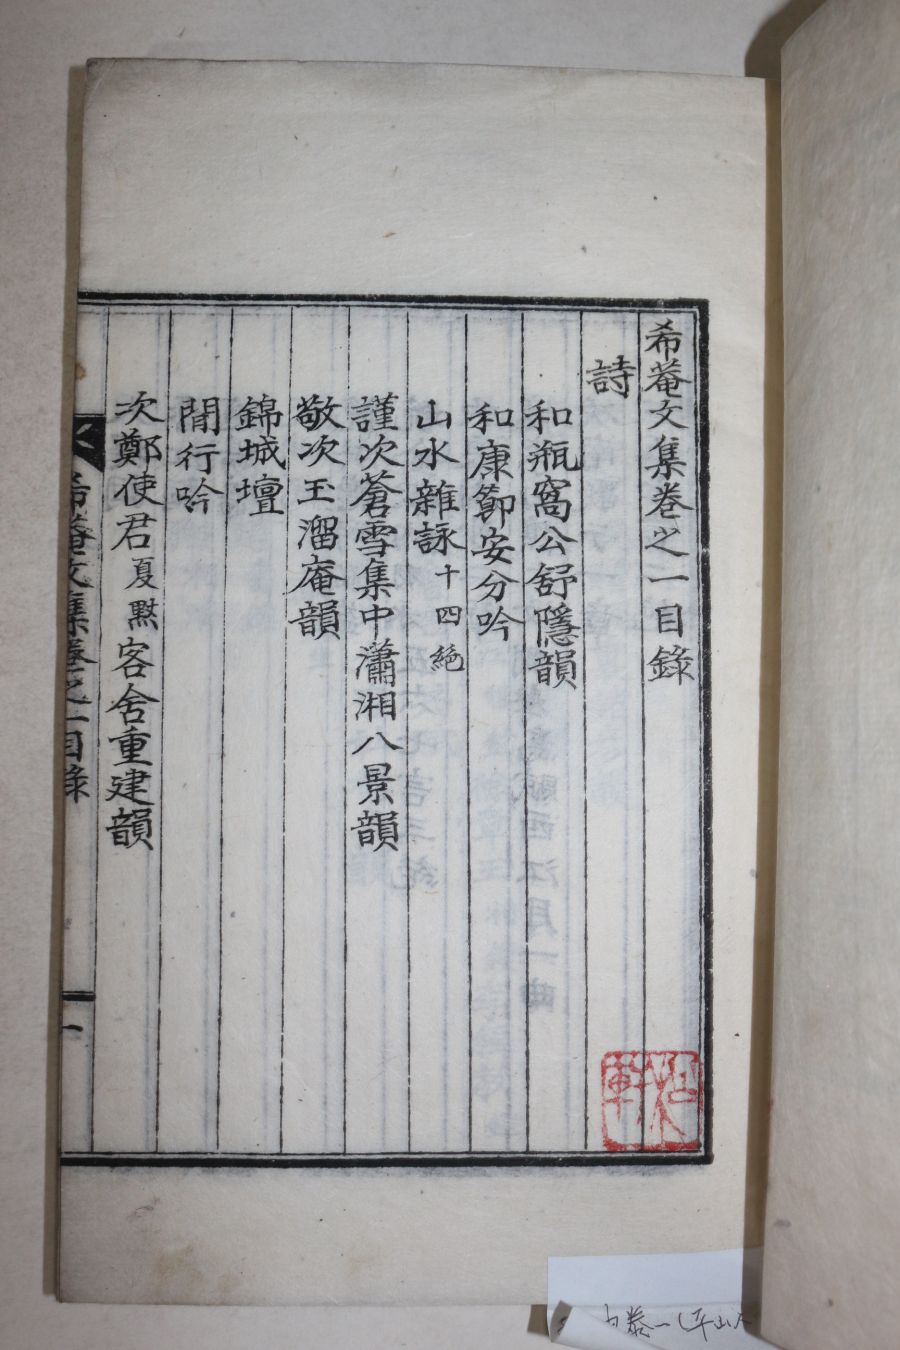 希菴文集卷之一目錄
詩
和瓶窩公舒隱韻
和康節安分吟
山水雜詠十四絶
謹次蒼雪集中瀟湘八景韻
敬次玉溜庵韻
錦城壇
閒行吟
次鄭使君夏默客舍重建韻
希菴文集卷之一目錄
一
軒